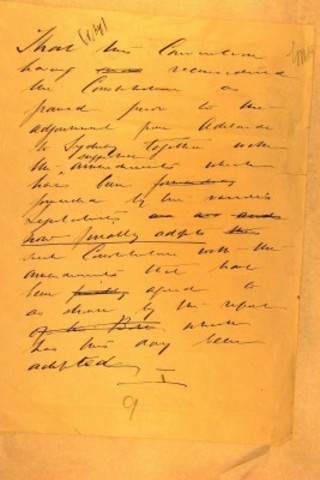 That this Convention
having reconsidered
the Constitution as
passed prior to the
adjournment from Adelaide
to Sydney together with
the suggested amendments which
have been
by the various
Legislatures
now finally adopts the
such Constitution with the
amendments that have
been finally agreed to
as shown by the report
of the which
has this day been
adopted
9